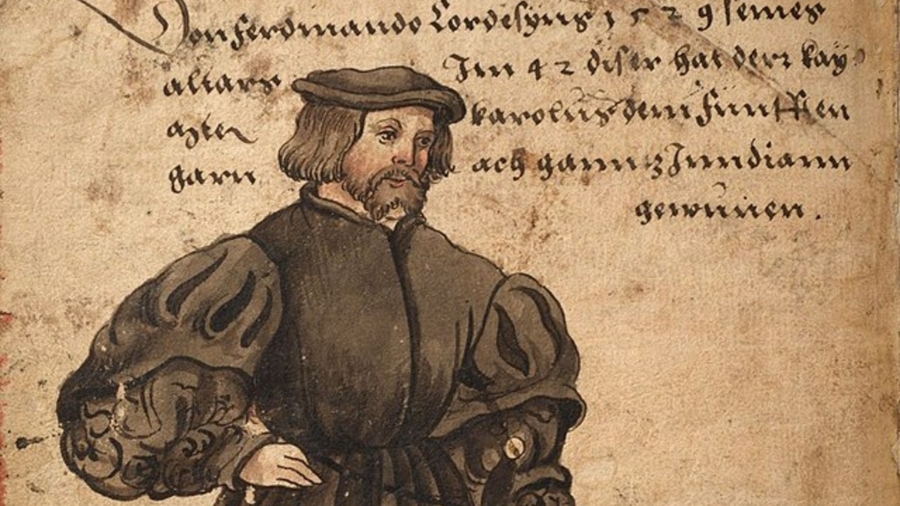 Don ferdmando Cordesyus 1529 seines
alttars Im 42 diser hat derr kay
karolus dem funfften
garn ach ganntz Inndiann
gewunen.